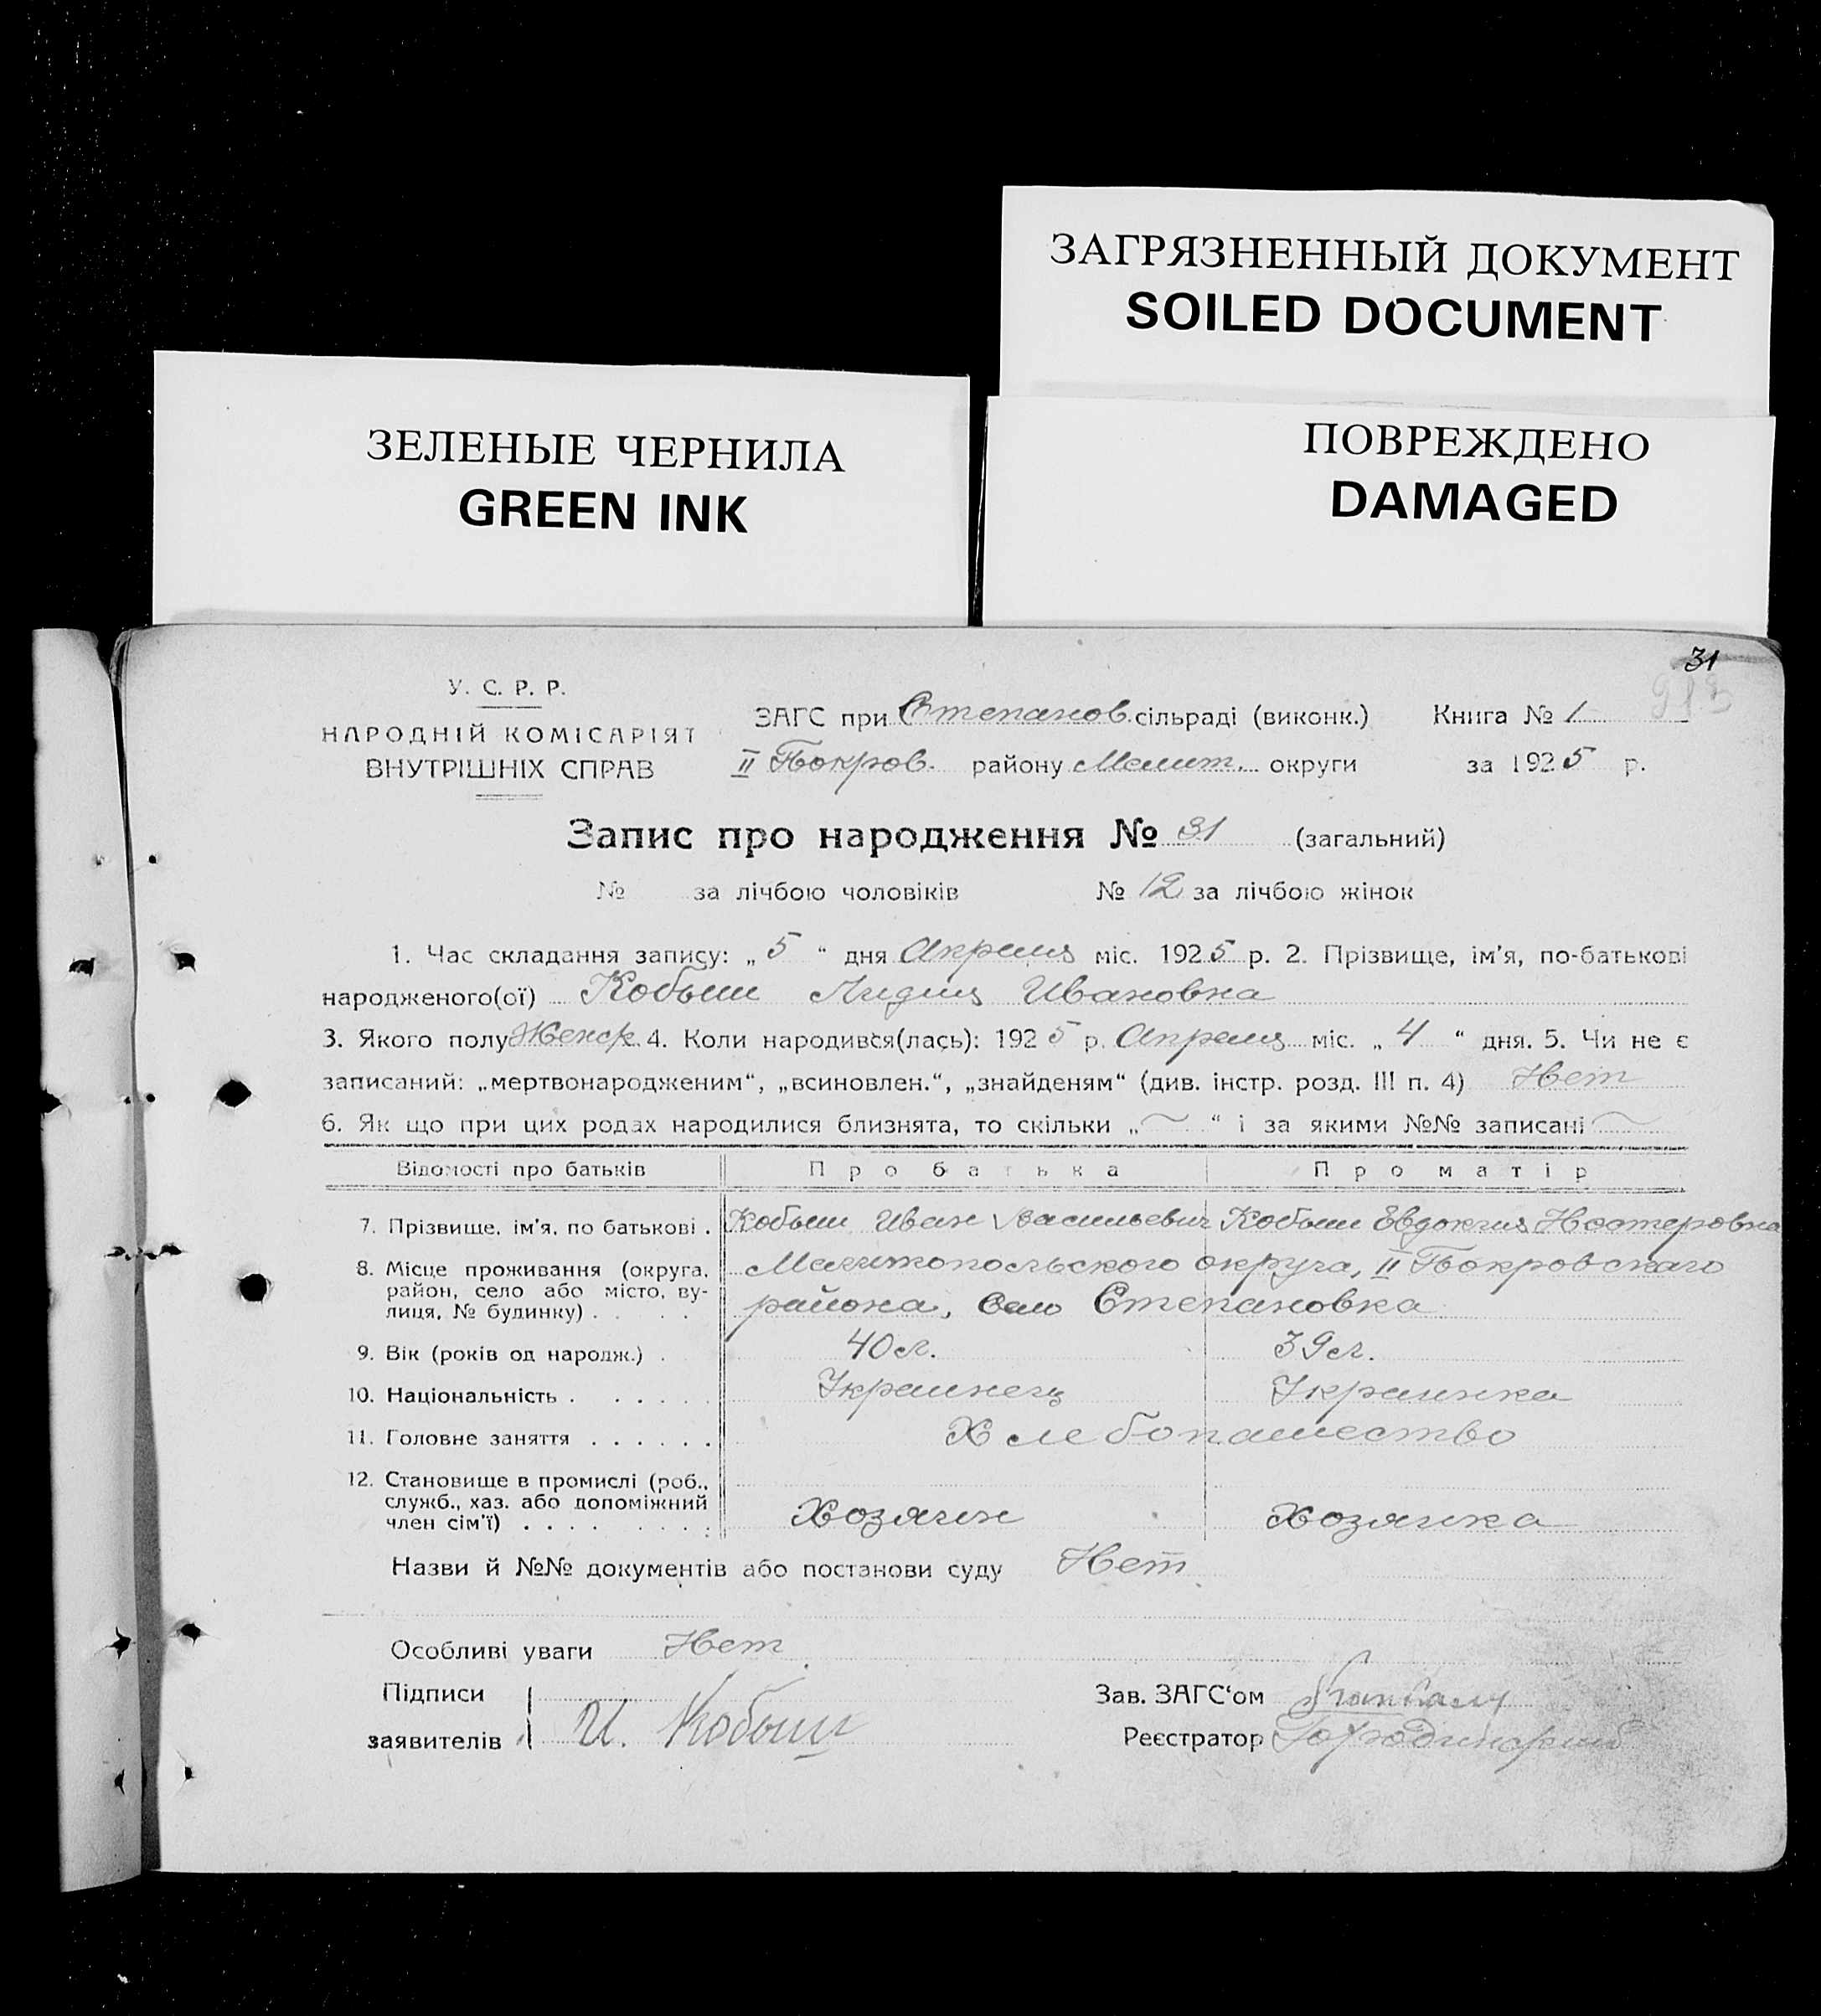 ЗАГРЯЗНЕННЫЙ ДОКУМЕНТ
SOILED DOCUMENT
ЗЕЛЕНЫЕ ЧЕРНИЛА
GREEN INK
ПОВРЕЖДЕНО
DAMAGED
31
У. С. Р. Р.
НАРОДНІЙ КОМІСАРІЯТ
ВНУТРІШНІХ СПРАВ
ЗАГС при Степанов. сільраді (виконк.) Книга № 1
II Покров. району Мелит. округи за 1925 р.
Запис про народження № 31 (загальний)
№ за лічбою чоловіків № 12 за лічбою жінок
1. Час складання запису: „ 5 “ дня Апреля міс. 1925 р. 2. Прізвище, ім’я, по-батькові
народженого(ої) Кобыш Лидия Ивановна
3. Якого полу Женск. 4. Коли народився(лась): 1925 р. Апреля міс. „ 4 “ дня. 5. Чи не є
записаний: „мертвонародженим“, „всиновлен.“, „знайденям“ (див. інстр. розд. III п. 4) Нет
6. Як що при цих родах народилися близнята, то скільки „ ~ “ і за якими №№ записані ~
Відомості про батьків Про батька Про матір
7. Прізвище, ім’я, по батькові . Кобыш Иван Васильевич Кобыш Евдокия Нестеровна
8. Місце проживання (округа, Мелитопольского округа, II Покровскаго
район, село або місто, ву- района, село Степановка
лиця, № будинку) . . . .
9. Вік (років од народж.) . 40 л. 39 л.
10. Національність . . . . . . Украинец Украинка
11. Головне заняття . . . . . . Хлебопашество
12. Становище в промислі (роб.,
служб., хаз. або допоміжний
член сім’ї) . . . . . . . . Хозяин Хозяйка
Назви й №№ документів або постанови суду Нет
Особливі уваги Нет
Підписи
заявителів И. Кобыш
Зав. ЗАГС‘ом
Реєстратор